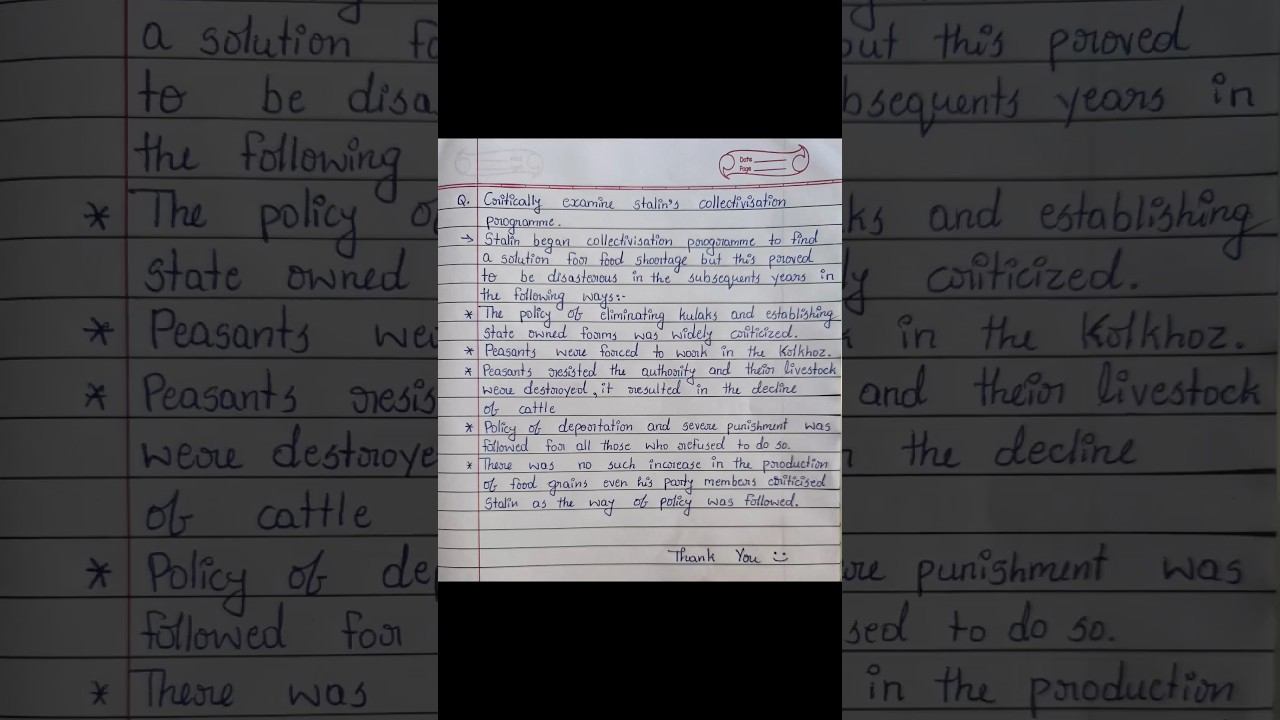 Date
Page
Q. Critically examine stalin's collectivisation
programme.
→ Stalin began collectivisation programme to find
a solution for food shortage but this proved
to be disasterous in the subsequents years in
the following ways:-
* The policy of eliminating kulaks and establishing
state owned forms was widely criticized.
* Peasants were forced to work in the Kolkhoz.
* Peasants resisted the authority and their livestock
were destroyed, it resulted in the decline
of cattle
* Policy of deportation and severe punishment was
followed for all those who refused to do so.
* There was no such increase in the production
of food grains even his party members criticised
Stalin as the way of policy was followed.
Thank You